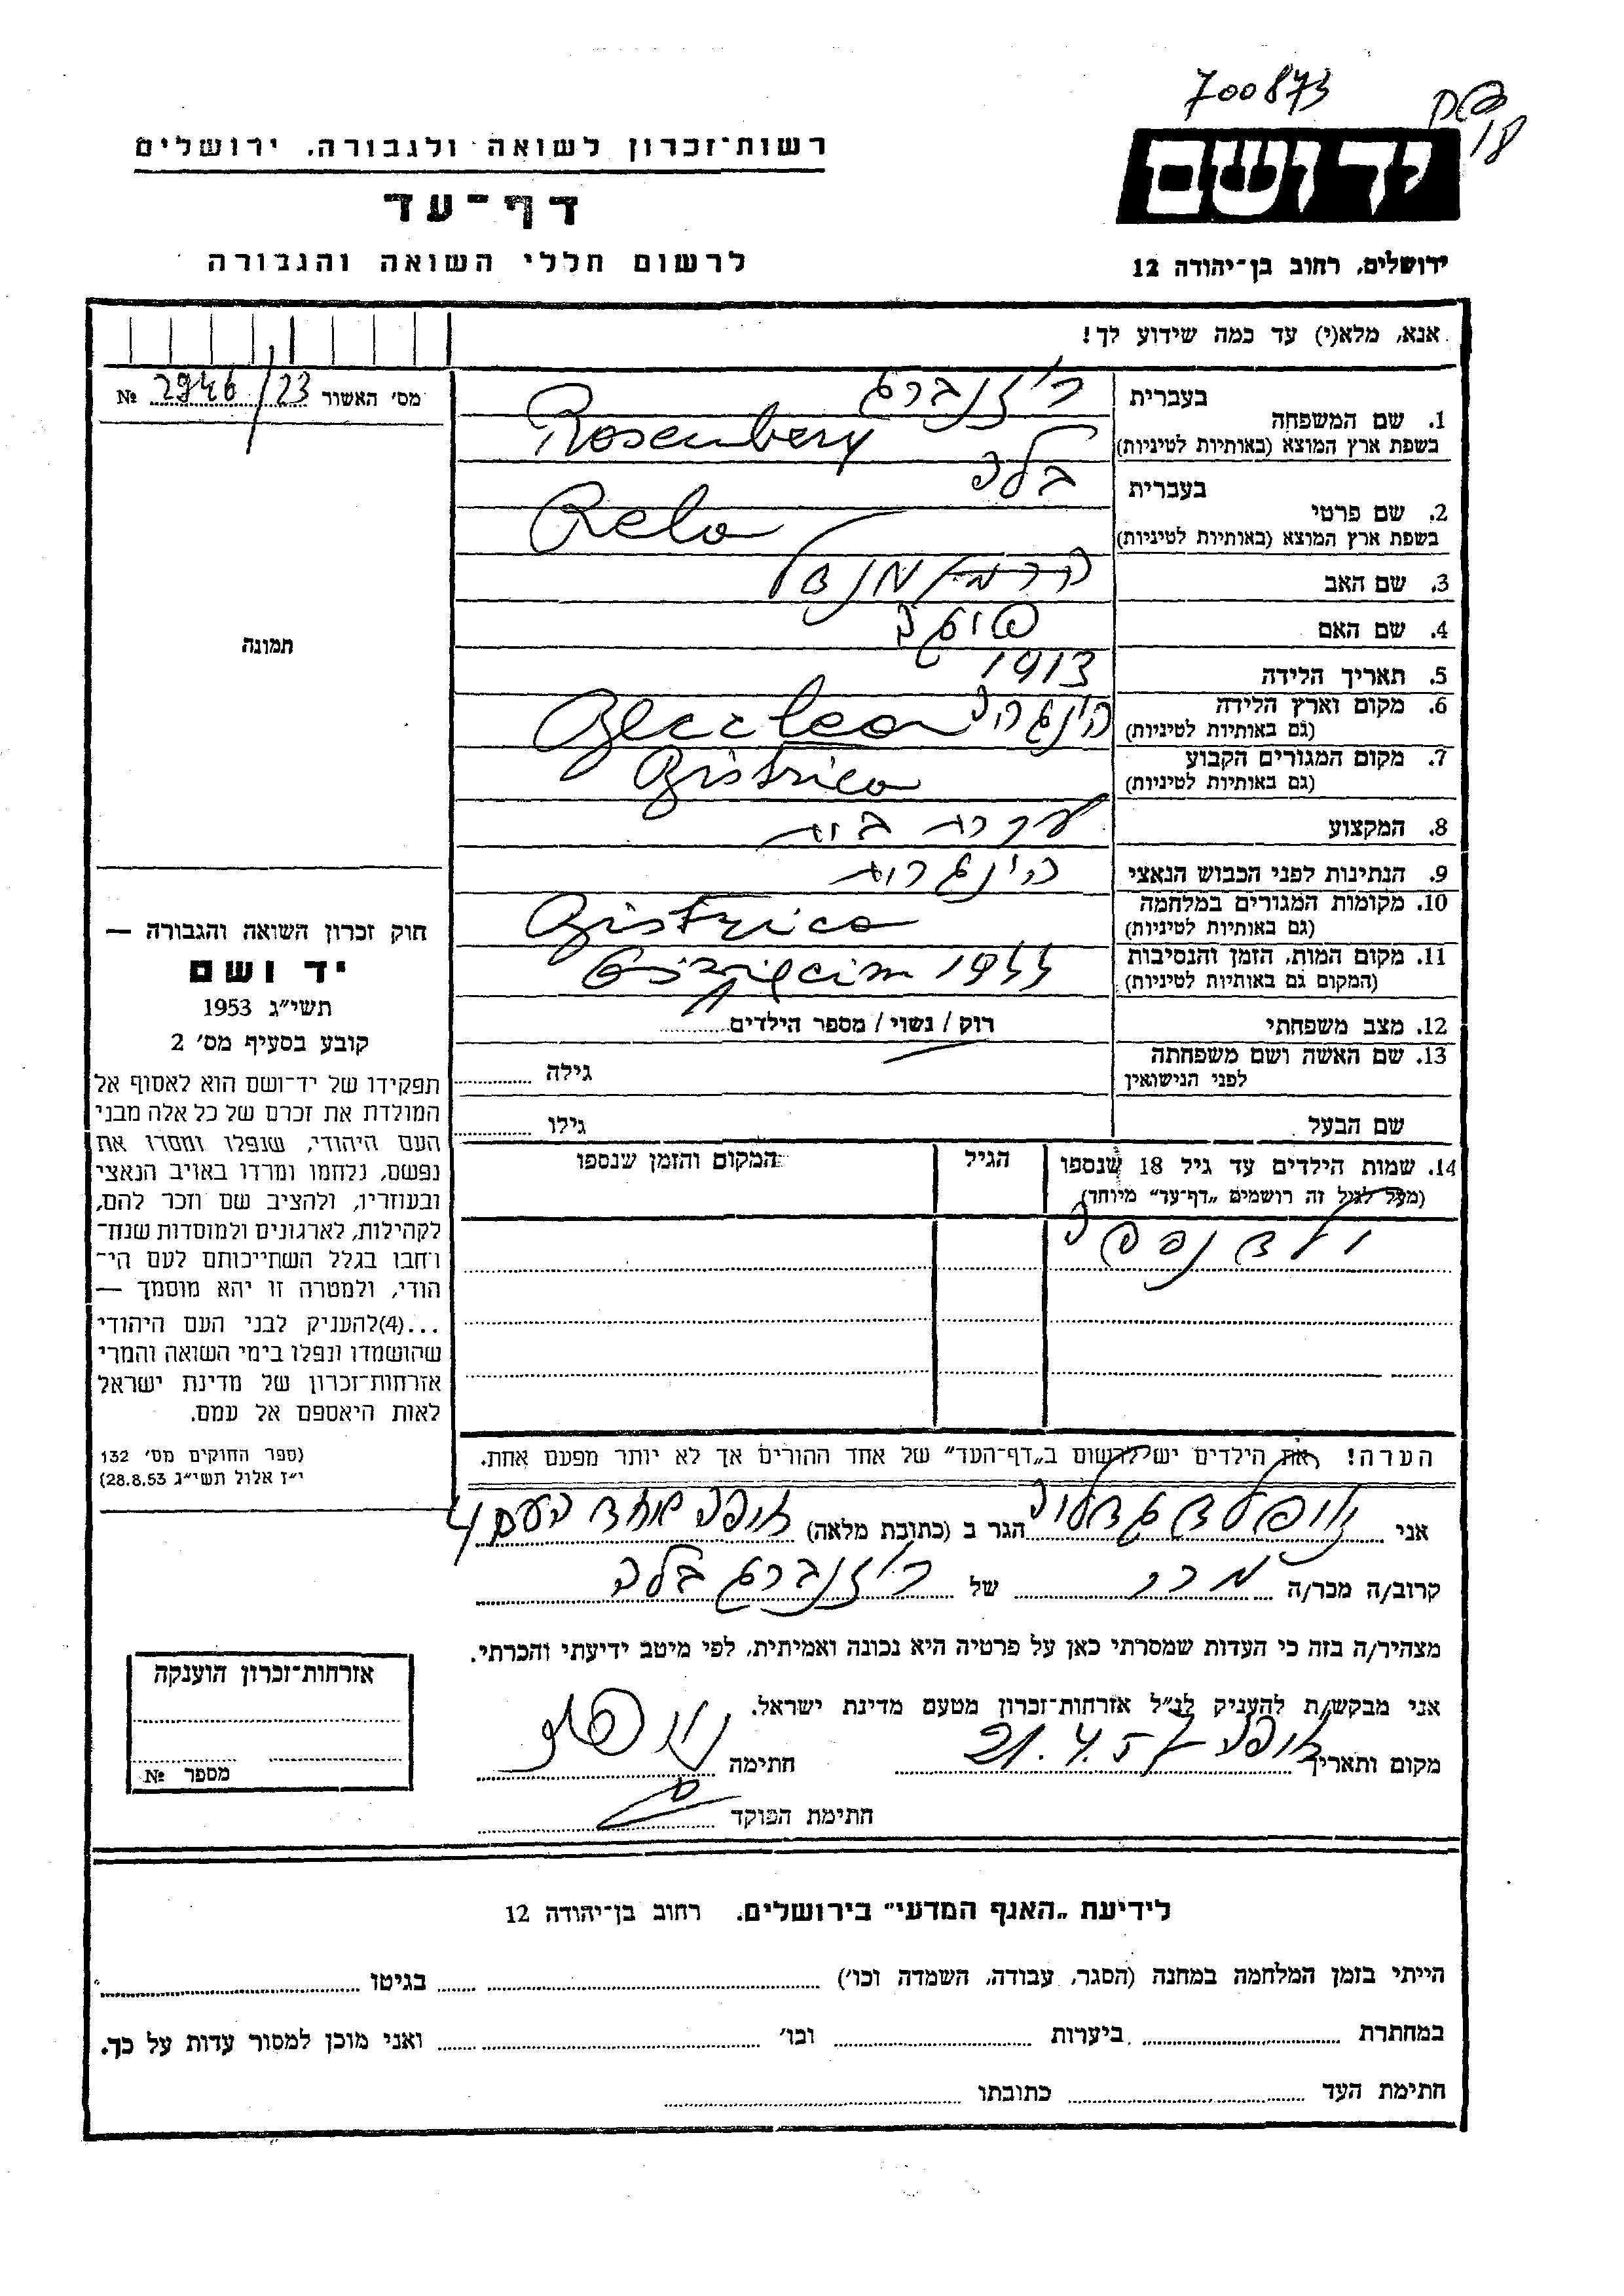 700873
רשות־זכרון לשואה ולגבורה. ירושלים
יד ושם
דף־עד
לרשום חללי השואה והגבורה
ירושלים, רחוב בן־יהודה 12
אנא, מלא(י) עד כמה שידוע לך!
מס׳ האשור 2946/23 №
1. שם המשפחה
בעברית רוזנברג
בשפת ארץ המוצא (באותיות לטיניות) Rosenberg
2. שם פרטי
בעברית בלה
בשפת ארץ המוצא (באותיות לטיניות) Bela
3. שם האב
4. שם האם
5. תאריך הלידה 1913
6. מקום וארץ הלידה
(גם באותיות לטיניות)
7. מקום המגורים הקבוע
(גם באותיות לטיניות) Bistrica
8. המקצוע עקרת בית
9. הנתינות לפני הכבוש הנאצי
10. מקומות המגורים במלחמה
(גם באותיות לטיניות) Bistrica
11. מקום המות, הזמן והנסיבות
(המקום גם באותיות לטיניות) 1944
12. מצב משפחתי רווק / נשוי / מספר הילדים
13. שם האשה ושם משפחתה
לפני הנישואין גילה
שם הבעל גילו
14. שמות הילדים עד גיל 18 שנספו הגיל המקום והזמן שנספו
(מעל לגיל זה רושמים „דף־עד״ מיוחד)
הערה! את הילדים יש לרשום ב„דף־העד״ של אחד ההורים אך לא יותר מפעם אחת.
תמונה
חוק זכרון השואה והגבורה —
יד ושם
תשי״ג 1953
קובע בסעיף מס׳ 2
תפקידו של יד־ושם הוא לאסוף אל
המולדת את זכרם של כל אלה מבני
העם היהודי, שנפלו ומסרו את
נפשם, נלחמו ומרדו באויב הנאצי
ובעוזריו, ולהציב שם וזכר להם,
לקהילות, לארגונים ולמוסדות שנח־
רחבו בגלל השתייכותם לעם הי־
הודי, ולמטרה זו יהא מוסמך —
...(4)להעניק לבני העם היהודי
שהושמדו ונפלו בימי השואה והמרי
אזרחות־זכרון של מדינת ישראל
לאות היאספם אל עמם.
(ספר החוקים מס׳ 132
י״ז אלול תשי״ג 28.8.53)
אני הגר ב (כתובת מלאה) חיפה אחד העם 4
קרוב/ה מכר/ה של רוזנברג בלה
מצהיר/ה בזה כי העדות שמסרתי כאן על פרטיה היא נכונה ואמיתית, לפי מיטב ידיעתי והכרתי.
אני מבקש/ת להעניק לנ״ל אזרחות־זכרון מטעם מדינת ישראל.
מקום ותאריך חיפה 21.4.57 חתימה
חתימת הפוקד
אזרחות־זכרון הוענקה
מספר №
לידיעת „האגף המדעי״ בירושלים. רחוב בן־יהודה 12
הייתי בזמן המלחמה במחנה (הסגר, עבודה, השמדה וכו׳) בגיטו
במחתרת ביערות וכו׳ ואני מוכן למסור עדות על כך.
חתימת העד כתובתו